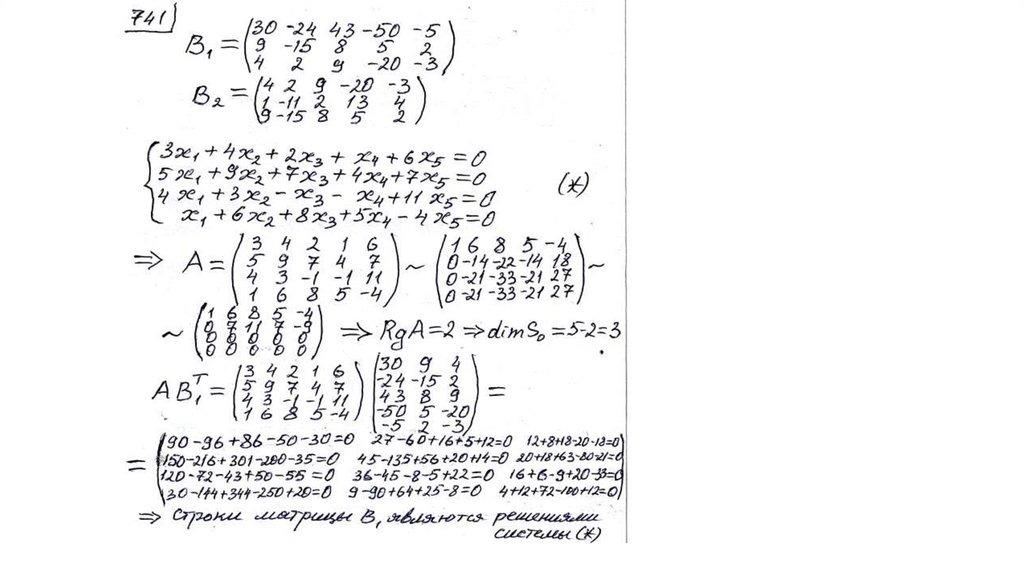 741
B₁ = (30 -24 43 -50 -5
9 -15 8 5 2
4 2 9 -20 -3)
B₂ = (4 2 9 -20 -3
1 -11 2 13 4
9 -15 8 5 2)
{3x₁ + 4x₂ + 2x₃ + x₄ + 6x₅ = 0
5x₁ + 9x₂ + 7x₃ + 4x₄ + 7x₅ = 0
4x₁ + 3x₂ - x₃ - x₄ + 11x₅ = 0 (*)
x₁ + 6x₂ + 8x₃ + 5x₄ - 4x₅ = 0
⇒ A = (3 4 2 1 6
5 9 7 4 7
4 3 -1 -1 11
1 6 8 5 -4) ~ (1 6 8 5 -4
0 -14 -22 -14 18
0 -21 -33 -21 27
0 -21 -33 -21 27) ~
~ (1 6 8 5 -4
0 7 11 7 -9
0 0 0 0 0
0 0 0 0 0) ⇒ RgA = 2 ⇒ dim S₀ = 5-2 = 3
AB₁ᵀ = (3 4 2 1 6
5 9 7 4 7
4 3 -1 -1 11
1 6 8 5 -4) (30 9 4
-24 -15 2
43 8 9
-50 5 -20
-5 2 -3) =
= (90-96+86-50-30=0 27-60+16+5+12=0 12+8+18-20-18=0
150-216+301-200-35=0 45-135+56+20+14=0 20+18+63-80-21=0
120-72-43+50-55=0 36-45-8-5+22=0 16+6-9+20-33=0
30-144+344-250+20=0 9-90+64+25-8=0 4+12+72-100+12=0)
⇒ строки матрицы B₁ являются решениями
системы (*)